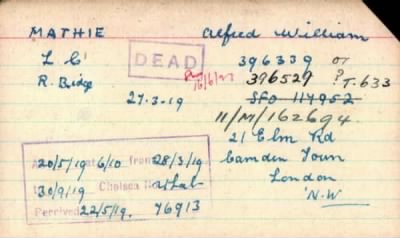 MATHIE Alfred William
L/C DEAD 396339 or
R. Bridge 16/6/ 396529 ? T.633
27-3-19 SFO 114952
11/M/162694.
21 Elm Rd
20/5/19 at 6/10 from 28/3/19 Camden Town
30/9/19 Chelsea London
Perceived 22/5/19. 76913 N.W